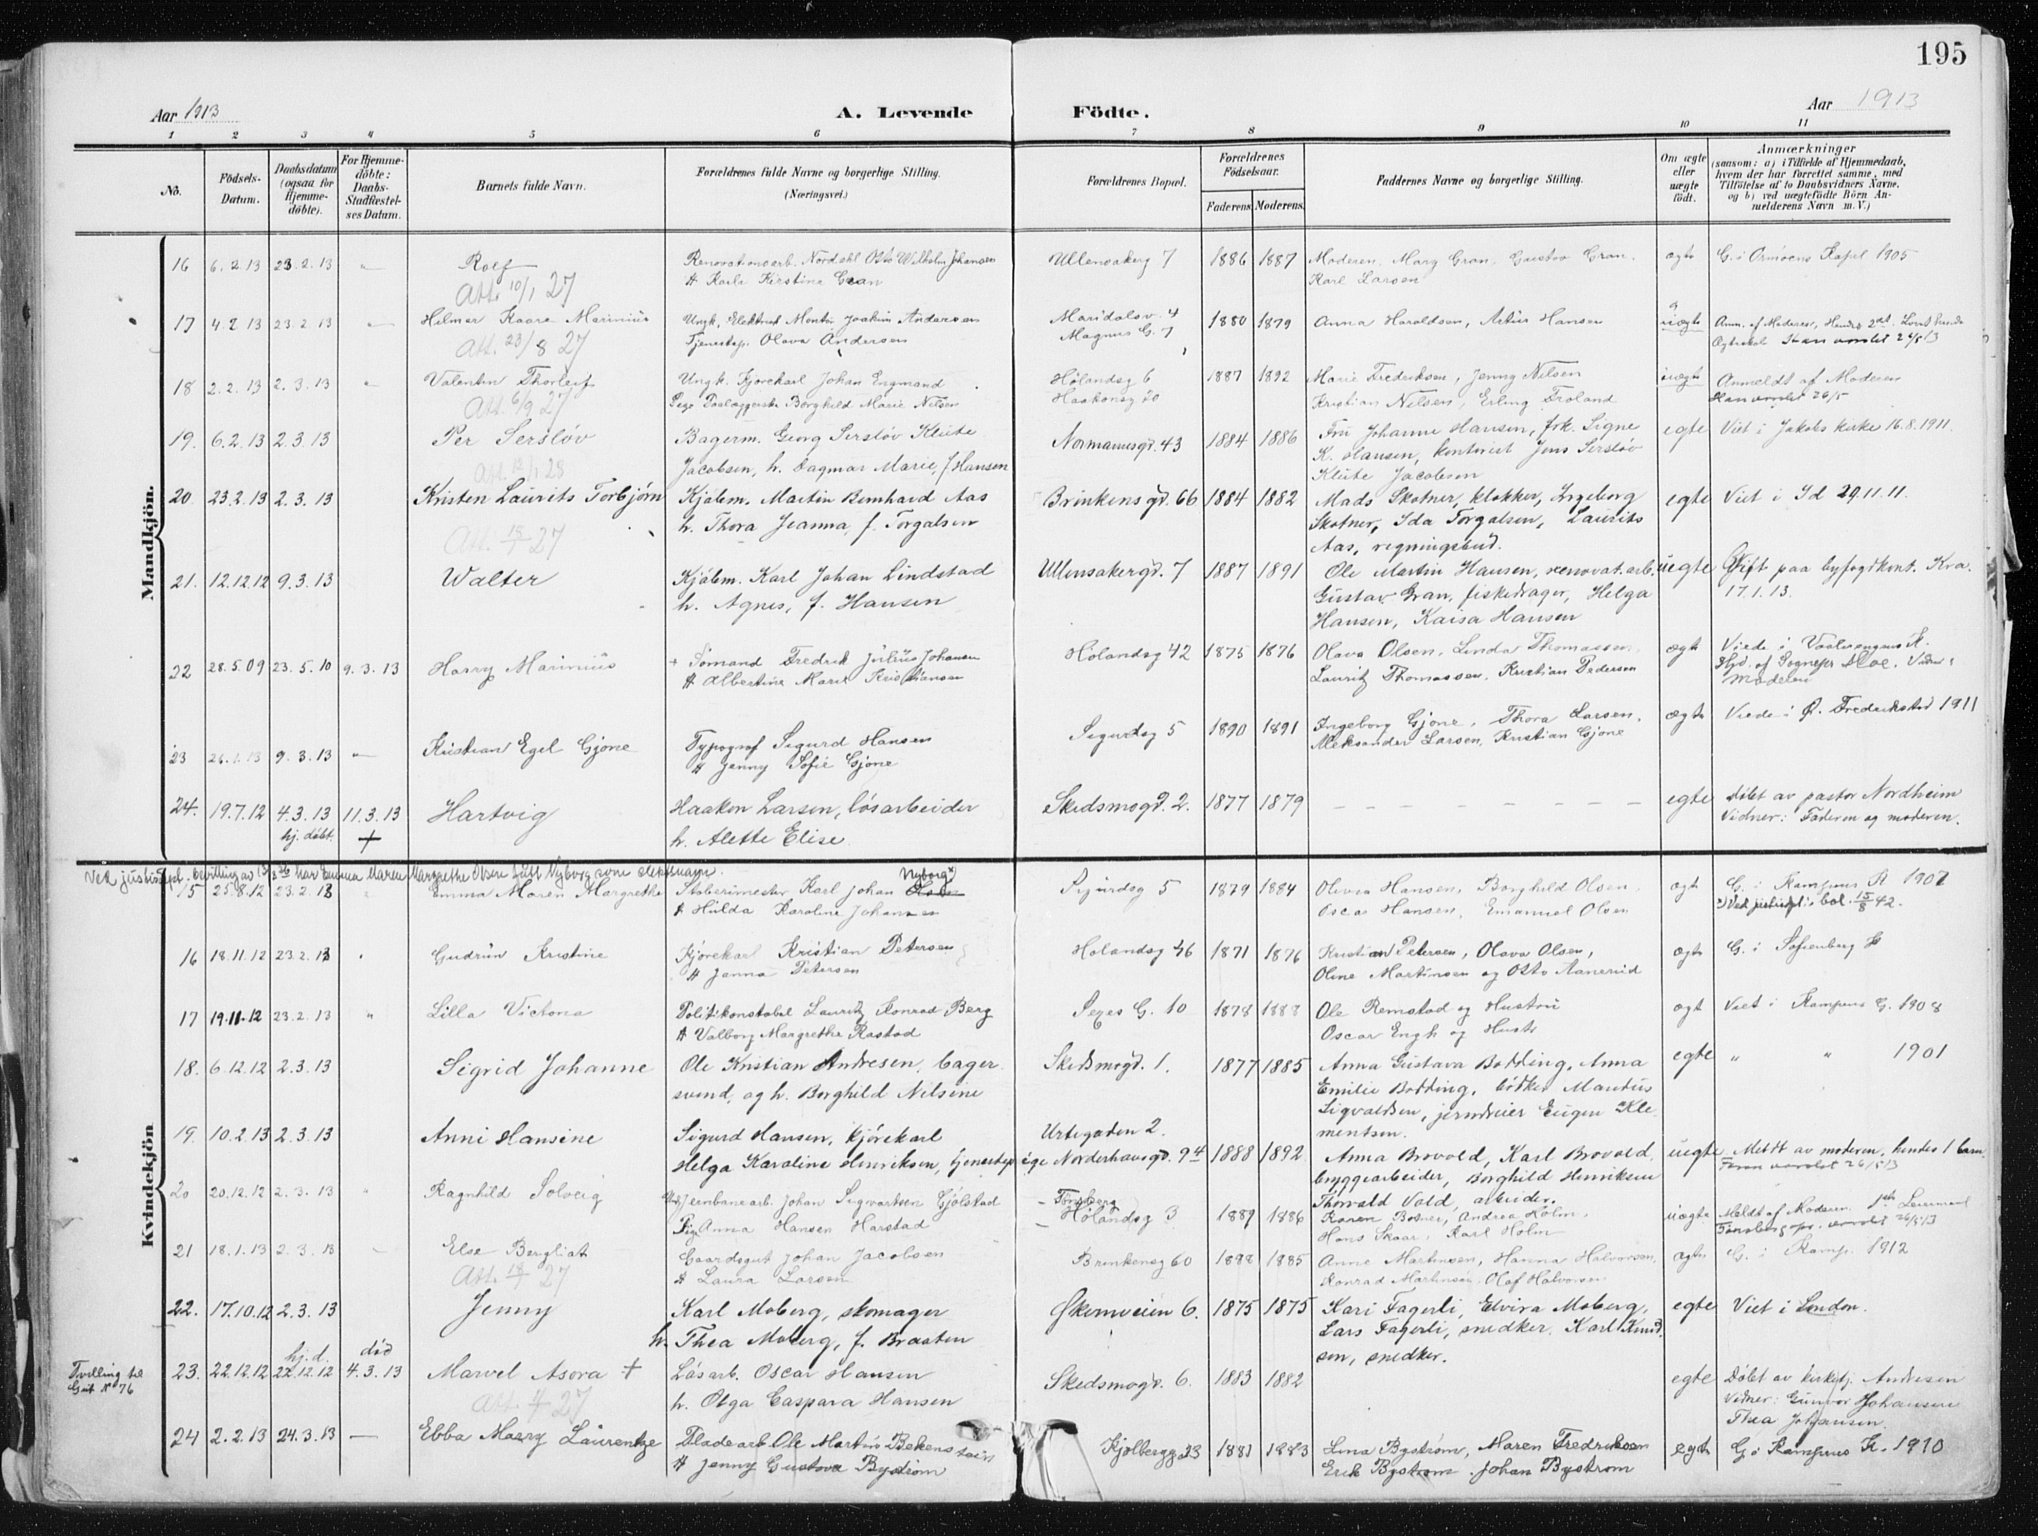 195
Aar 1913 A. Levende Födte. Aar 1913
1 2 3 4 5 6 7 8 9 10 11
No. Födsels-Datum. Daabsdatum (ogsaa for Hjemmedöbte). For Hjemmedöbte: Daabs-Stadfestelses Datum. Barnets fulde Navn. Forældrenes fulde Navne og borgerlige Stilling. (Næringsvei.) Forældrenes Bopæl. Forældrenes Födselsaar. Faderens Moderens. Faddernes Navne og borgerlige Stilling. Om ægte eller uægte födt. Anmærkninger (saasom: a) i Tilfælde af Hjemmedaab, hvem der har forrettet samme, med Tilföielse af to Daabsvidners Navne, og b) ved uægtefödte Börn Anmelderens Navn m. V.)
Mandkjön.
16 6.2.13 23.2.13 " Rolf Renovationsarb. Nordahl Otto Wilhelm Johansen Ullensakerg 7 1886 1887 Moderen, Mary Gran, Gustav Gran, ægte G. i Ormöens Kapel 1905
Att. 10/1 27 H Karla Kirstine Gran Karl Larsen
17 4.2.13 23.2.13 — Hilmar Kaare Marinius Ungk. Elektrisk Montör Joakim Andersen Maridalsv. 4 1880 1879 Anna Haraldsen, Artur Hansen uægte Anm. af Moderen,
Att. 23/8 27 Tjenestep. Olava Andersen Magnus G. 7
18 2.2.13 2.3.13 " Valentin Thorleif Ungk. Kjörekarl Johan Engmand Hölandsg 6 1887 1892 Marie Fredriksen, Jenny Nilsen uægte Anmeldt af Moderen
Att. 6/9 27 Pige Borghild Marie Nilsen Haakonsg 20 Kristian Nilsen, Erling Froland Han varslet 26/5
19. 6.2.13 2.3.13 Per Serslöv Bagerm. Georg Serslöv Klüte Normannsgd. 43 1884 1886 Fru Johanne Hansen, frk. Signe egte Viet i Jakobs kirke 16.8.1911.
Jacobsen, h. Dagmar Marie, f. Hansen K. Hansen, kontorist Jens Serslöv
Klüte Jacobsen
20 23.2.13 2.3.13 Kristen Laurits Torbjörn Kjöbm. Martin Bernhard Aas Brinkensgd. 66 1884 1882 Mads Skotner, klokker, Ingeborg egte Viet i Id 29.11.11.
Att. 18/7 27 h. Thora Jeanna, f. Torgalsen Skotner, Ida Torgalsen, Laurits
Aas, regningsbud.
21. 12.12.12 9.3.13 Walter Kjöbm. Karl Johan Lindstad Ullensakergd. 7 1887 1891 Ole Martin Hansen, renovat.arb. uegte Gift paa byfogdkont. Kra.
h. Agnes, f. Hansen Gustav Gran, fiskedrager, Helga 17.1.13.
Hansen, Kaisa Hansen
22 28.5.09 23.5.10 9.3.13 Harry Marinius + Sömand Fredrik Julius Johansen Hölandsg 42 1875 1876 Olava Olsen, Linda Thomassen, ægte Viede i Vaalerengens K.
H Albertine Marie Kristiansen Lauritz Thomassen, Kristian Pedersen Hjd. af Sognepr
Moderen
23 26.1.13 9.3.13 — Kristian Egil Gjöne Typograf Sigurd Hansen Sigurdsg 5 1890 1891 Ingeborg Gjöne, Thora Larsen, ægte Viede i Ö. Fredrikstad 1911
H Jenny Sofie Gjöne Aleksander Larsen, Kristian Gjöne
24. 19.7.12 4.3.13 11.3.13 Hartvig Haakon Larsen, lösarbeider Skedsmogd. 2. 1877 1879 — — — — — — — egte döbt av pastor Nordheim
hj. döbt. + h. Alette Elise Vidner: Faderen og moderen.
Kvindekjön
Ved justisdept. bevilling av har Emma Maren Margrethe Olsen fått Nyborg som slektsnavn.
15 25.8.12 23.2.13 " Emma Maren Margrethe Stoberimester Karl Johan Olsen Nyborg Sigurdsg 5 1879 1884 Olivia Hansen, Borghild Olsen, ægt G. i Kampens K 1907
H Hulda Karoline Johansen Oscar Hansen, Emanuel Olsen Ved justisdpt. bev. 15/8 42.
16 18.11.12 23.2.13 " Gudrun Kristine Kjörekarl Kristian Petersen Hölandsg 46 1871 1876 Kristian Petersen, Olava Olsen, ægte G. i Sofienberg K
H Janna Petersen Oline Martinsen og Otto Aanerud
17 19.11.12 23.2.13 " Lilla Victoria Politikonstabel Lauritz Konrad Berg Seges G. 10 1878 1888 Ole Remstad og Hustru ægt Viet i Kampens K. 1908
H Valborg Margrethe Rastad Oscar Engh og Hustr
18. 6.12.12 2.3.13 Sigrid Johanne Ole Kristian Andresen, bager Skedsmogd. 1. 1877 1885 Anna Gustava Bodding, Anna egte " " 1901
svend, og h. Borghild Nilsine Emilie Bodding, bödker Mauritus
Sigvaldsen, jerndreier Eugen Kle
mentsen.
19. 10.2.13 2.3.13 Anni Hansine Sigurd Hansen, kjörekarl Urtegaden 2.
Helga Karoline Henriksen, tjenestepige Norderhovsgd. 94 1888 1892 Anna Brovold, Karl Brovold, uegte Meldt av moderen, hendes 1 barn
byggearbeider, Borghild Henriksen Faren varslet 26/5 13
Thorvald Vold, arbeider.
20 20.12.12 2.3.13 " Ragnhild Solveig Jernbanearb. Johan Sigvartsen Gjölstad Tönsberg
Pig Anna Hansen Harstad Hölandsg 3 1887 1886 Karen Bosnes, Andrea Holm, uægte Meldt af Moderen
Hans Skaar, Karl Holm
21 18.1.13 2.3.13 — Else Bergliat Gaardsgut Johan Jacobsen Brinkensg 60 1888 1885 Anne Martinsen, Hanna Halvorsen, ægte G. i Kamp. 1912
Att. 18/7 27 H Laura Larsen Konrad Martinsen, Olaf Halvorsen
22. 17.10.12 2.3.13 Jenny Karl Moberg, skomager Økernveien 6. 1875 1875 Kari Fagerli, Elvira Moberg, egte Viet i London.
h. Thea Moberg, f. Braaten Lars Fagerli, snedker, Karl Knud
sen, snedker.
Tvilling til Gut No 76 23. 22.12.12 hj.d. 22.12.12 död 4.3.13 Marvel Asora + Lösarb. Oscar Hansen Skedsmogd. 6. 1883 1882 egte Döbt av kirketj. Andresen
h. Olga Caspara Hansen Vidner: Gunvor Johansen
Thea Johansen.
24 2.2.13 24.3.13 — Ebba Marry Laurentze Pladearb. Ole Martins Bekensten Kjölbergg 23 1881 1883 Lina Byström, Maren Fredriksen egt G i Kampens K. 1910
H Jenny Gustava Byström Erik Byström, Johan Byström